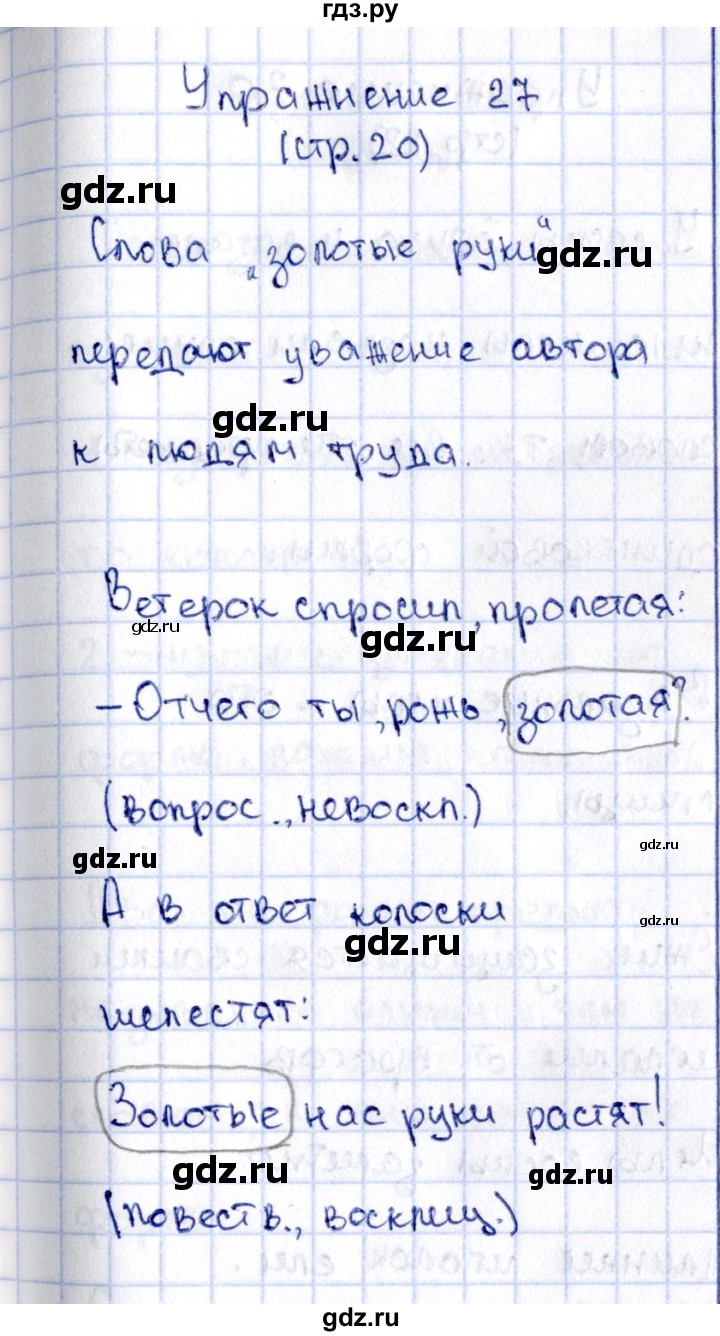 гдз.ру
Упражнение 27
(стр. 20)
gdz.ru
Слова „золотые руки“
gdz.ru
передают уважение автора
gdz.ru
к людям труда.
Ветерок спросил, пролетая:
gdz.ru
gdz.ru
- Отчего ты, рожь, золотая?
(вопрос., невоскл.)
gdz.ru
gdz.ru
А в ответ колоски
gdz.ru
gdz.ru
шелестят:
Золотые нас руки растят!
gdz.ru
gdz.ru
(повеств., восклиц.)
gdz.ru